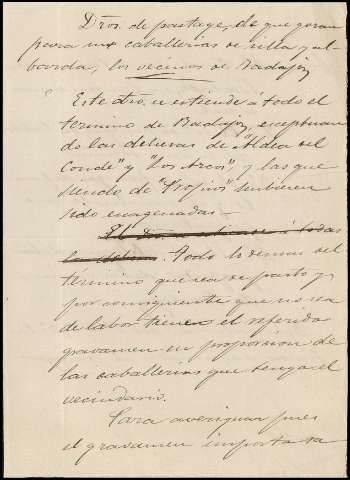 Dros. de pastage, de que gozan
para sus caballerias de silla y al-
barda, los vecinos de Badajoz
Este dro. se estiende á todo el
termino de Badajoz, exceptuan-
do las dehesas de "Aldea del
Conde" y "Los Arcos", y las que
siendo de "Propios" hubieren
sido enagenadas.—
El Dro. se estiende á todas
las dehesas. Todo lo demas del
término que sea de pasto y
por consiguiente que no sea
de labor tiene el referido
gravamen en proporcion de
las caballerias que tenga el
vecindario.
Para averiguar pues
el gravamen importa sa-